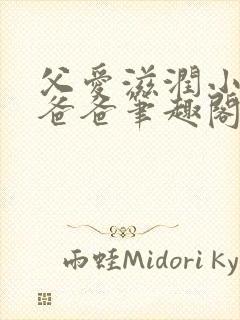 父愛滋潤小
爸爸筆趣閣
雨蛙Midori Ky